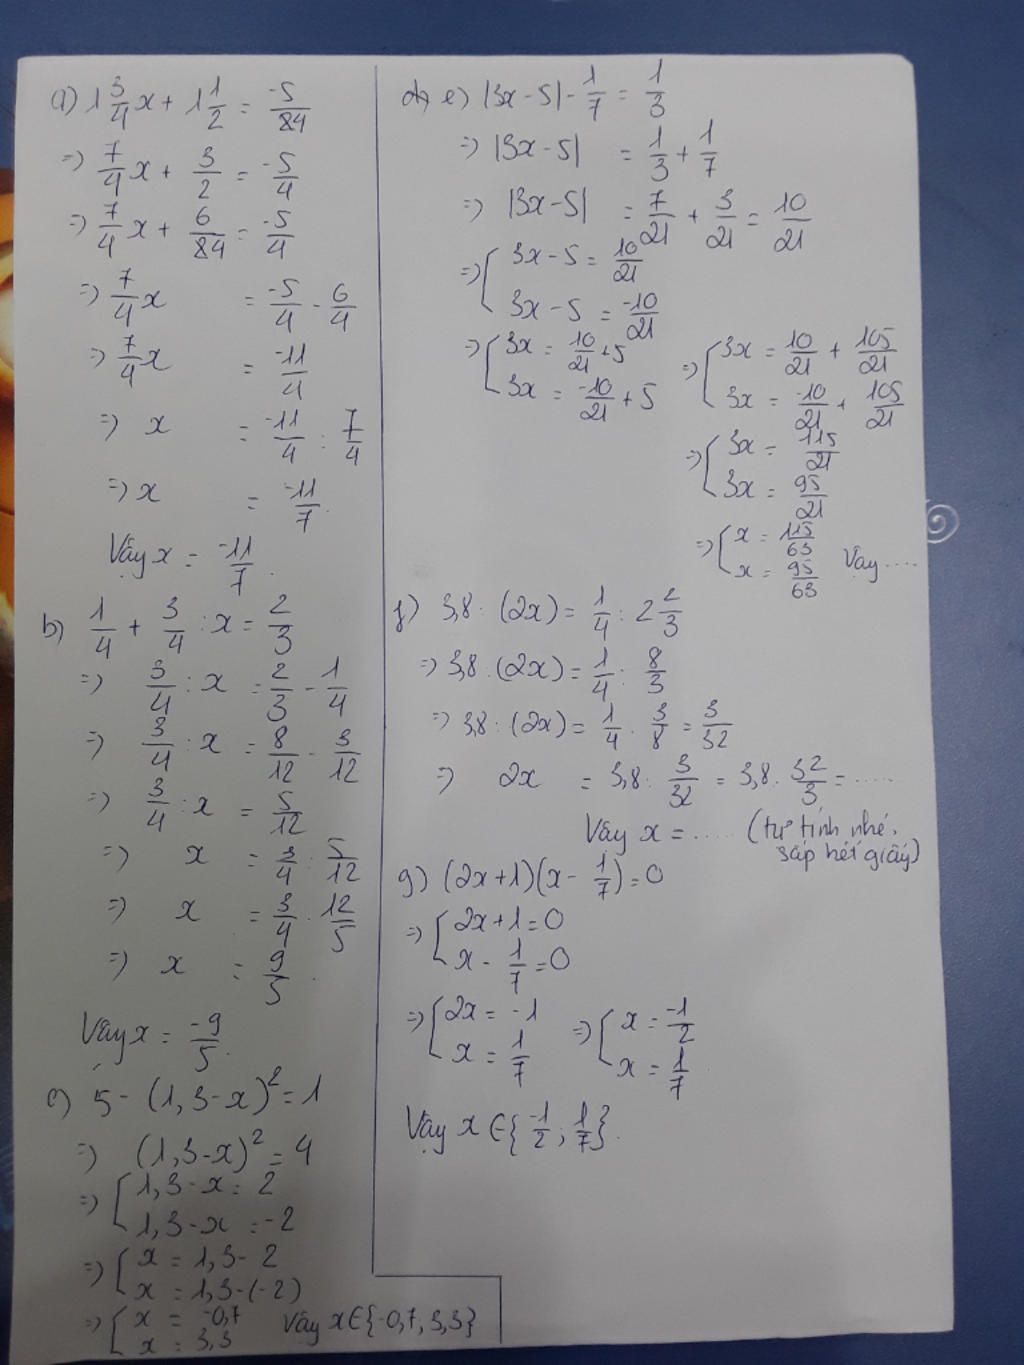 a) 1 3/4 x + 1 1/2 = -5/84
=> 7/4 x + 3/2 = -5/4
=> 7/4 x + 6/84 = -5/4
=> 7/4 x = -5/4 - 6/4
=> 7/4 x = -11/4
=> x = -11/4 : 7/4
=> x = -11/7.
Vậy x = -11/7.
b) 1/4 + 3/4 : x = 2/3
=> 3/4 : x = 2/3 - 1/4
=> 3/4 : x = 8/12 - 3/12
=> 3/4 : x = 5/12
=> x = 3/4 : 5/12
=> x = 3/4 . 12/5
=> x = 9/5.
Vậy x = -9/5.
c) 5 - (1,3-x)² = 1
=> (1,3-x)² = 4
=> [ 1,3-x = 2
1,3-x = -2
=> [ x = 1,3- 2
x = 1,3-(-2)
=> [ x = -0,7
x = 3,3
Vậy x∈{-0,7, 3,3}
e) |3x - 5| - 1/7 = 1/3
=> |3x - 5| = 1/3 + 1/7
=> |3x-5| = 7/21 + 3/21 = 10/21
=> [ 3x - 5 = 10/21
3x - 5 = -10/21
=> [ 3x = 10/21 + 5
3x = -10/21 + 5
=> [ 3x = 10/21 + 105/21
3x = -10/21 + 105/21
=> [ 3x = 115/21
3x = 95/21
=> [ x = 115/63
x = 95/63
Vậy ....
f) 3,8 : (2x) = 1/4 : 2 2/3
=> 3,8 : (2x) = 1/4 : 8/3
=> 3,8 : (2x) = 1/4 . 3/8 = 3/32
=> 2x = 3,8 : 3/32 = 3,8 . 32/3 = .....
Vậy x = ..... (tự tính nhé,
sắp hết giấy)
g) (2x+1)(x - 1/7) = 0
=> [ 2x+1 = 0
x - 1/7 = 0
=> [ 2x = -1
x = 1/7
=> [ x = -1/2
x = 1/7
Vậy x ∈ { -1/2 ; 1/7 }.